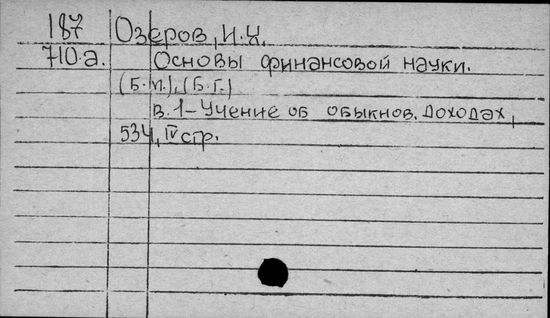 187 Озеров, И.Х.
710.а. Основы финансовой науки.
(Б.м.), (Б.г.)
В.1-Учение об обыкнов. доходах,
534, IV стр.